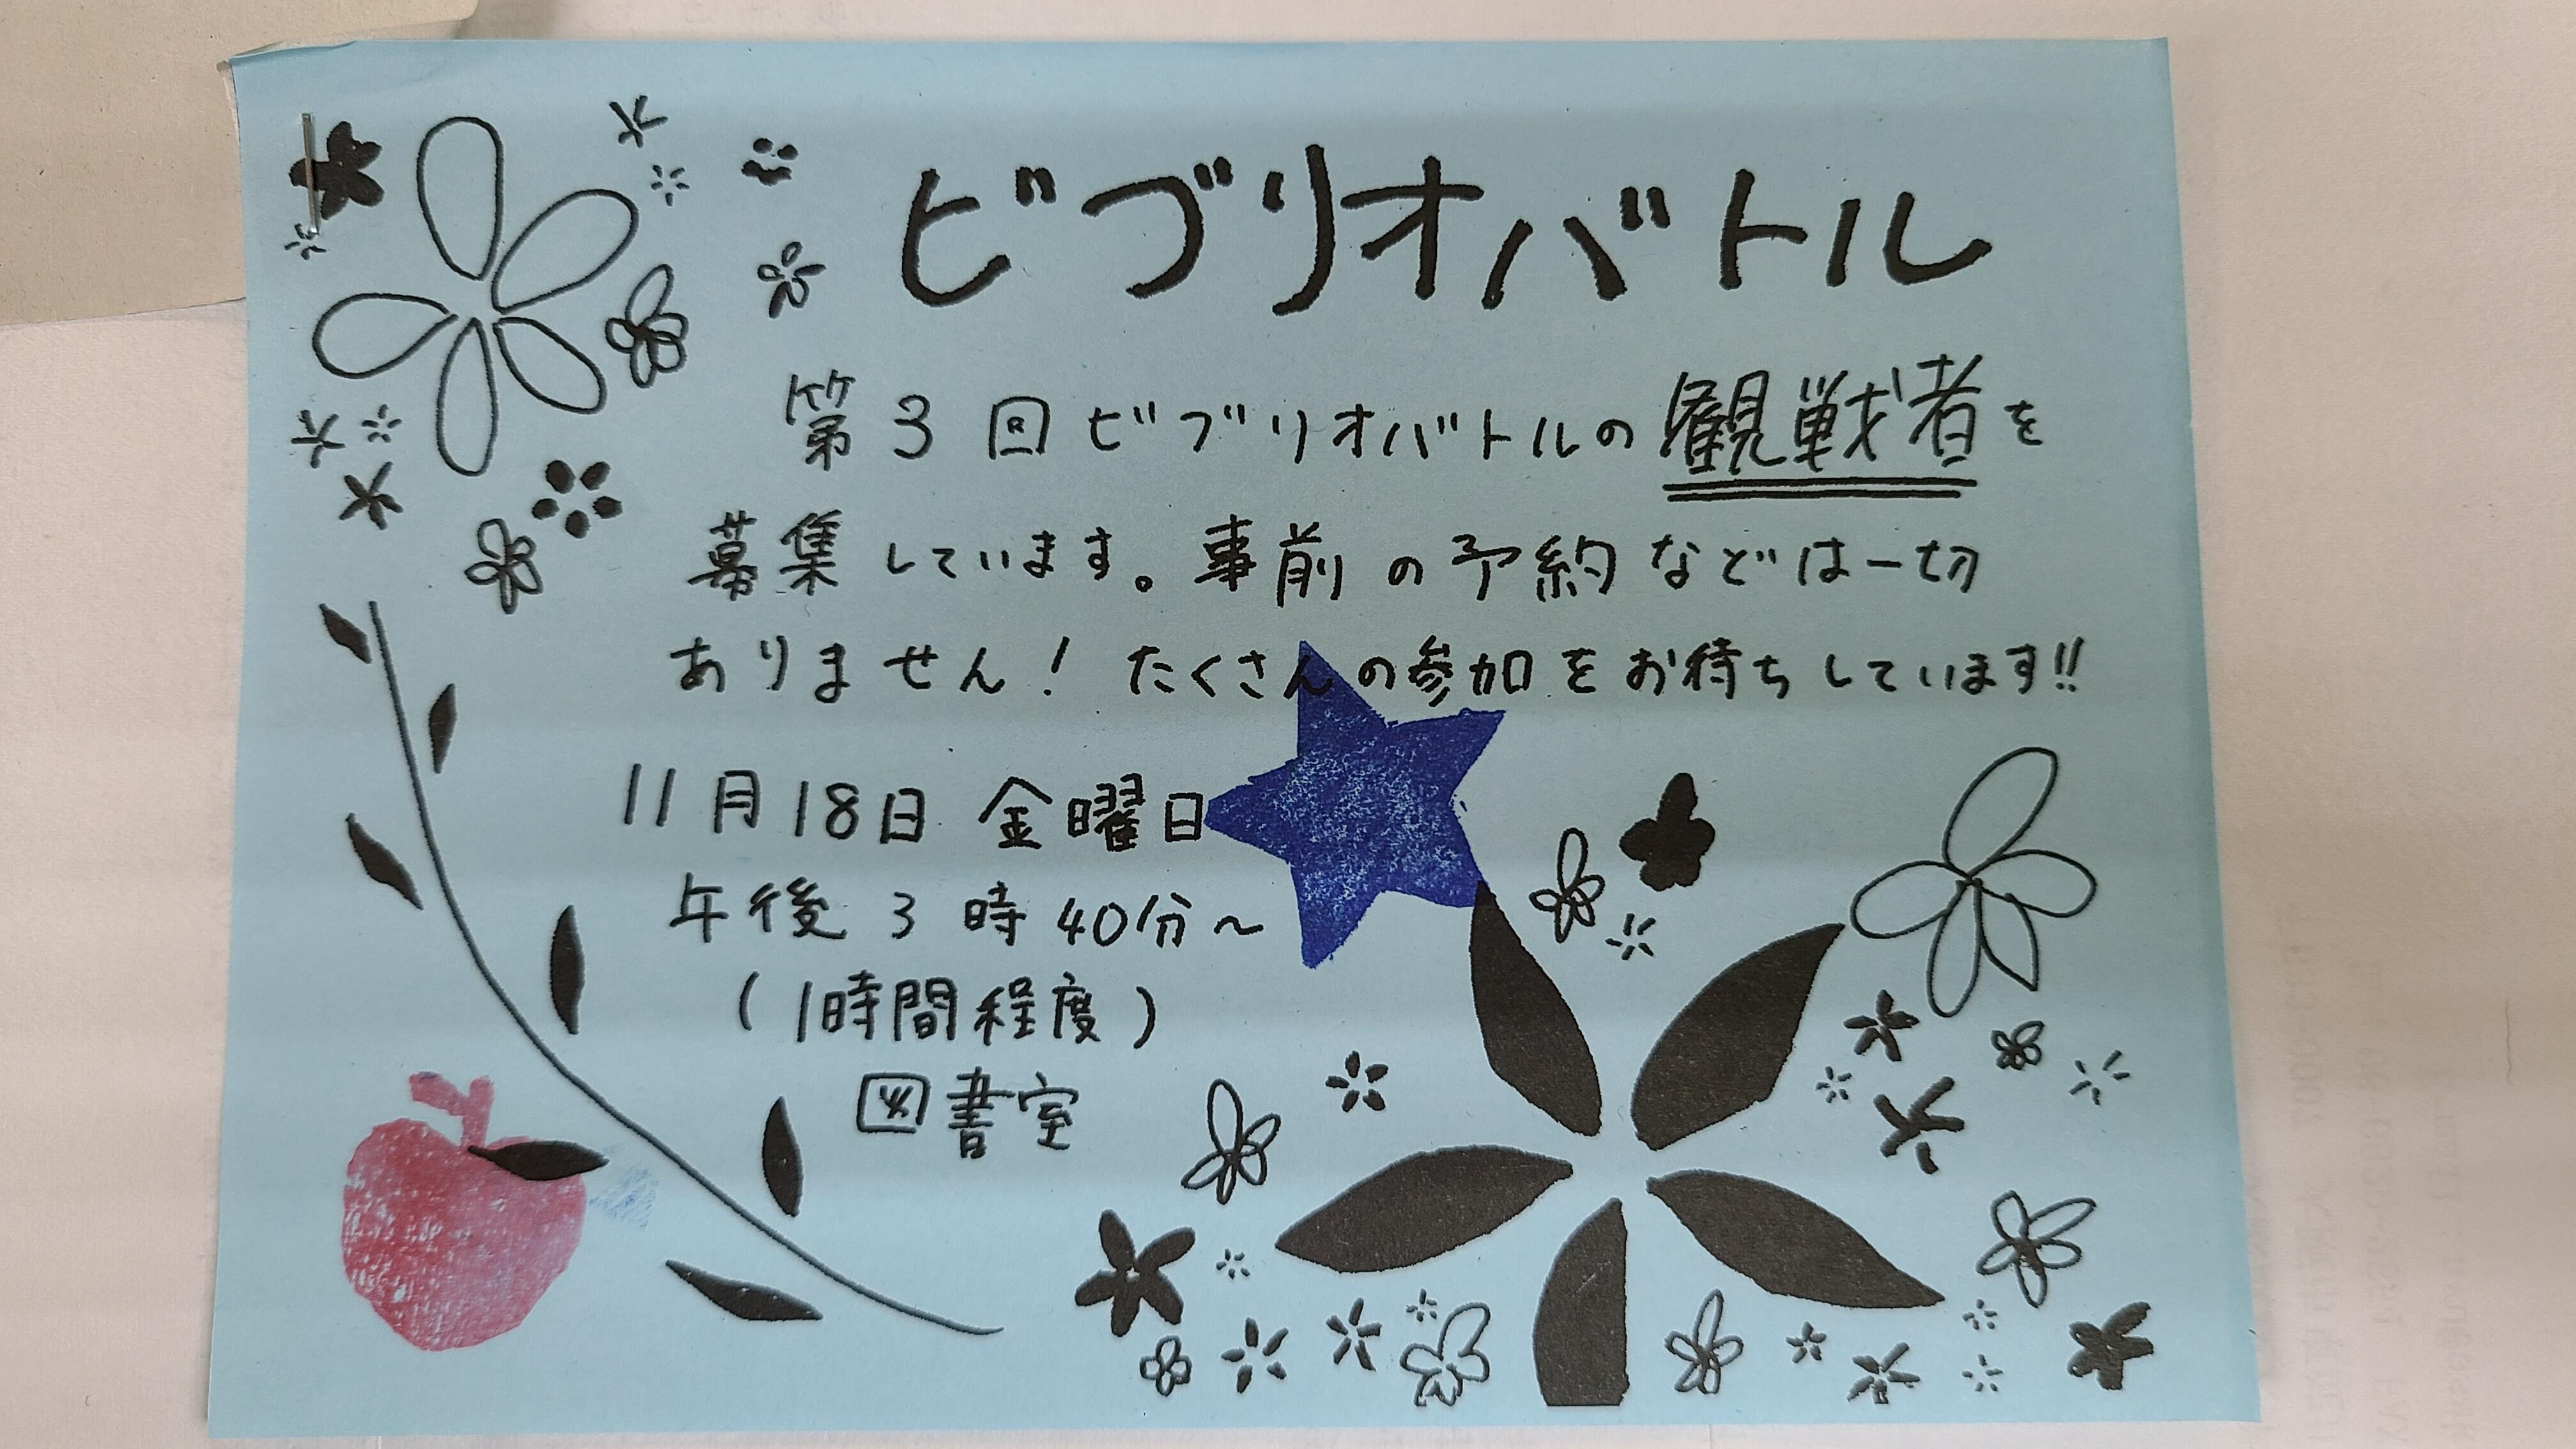 ビブリオバトル
第3回ビブリオバトルの観戦者を
募集しています。事前の予約などは一切
ありません！たくさんの参加をお待ちしています!!
11月18日 金曜日
午後3時40分～
(1時間程度)
図書室